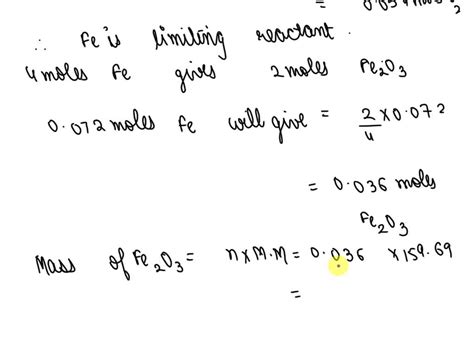 ∴ Fe is limiting reactant.
4 moles Fe gives 2 moles Fe₂O₃
0.072 moles Fe will give = 2/4 × 0.072
= 0.036 moles
Fe₂O₃
Mass of Fe₂O₃ = n × M.M = 0.036 × 159.69
=